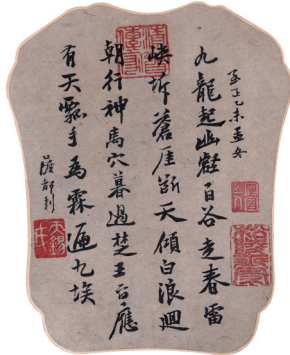 至正乙未孟冬
九龍起幽壑百谷走春雷
峽坼蒼厓斷天傾白浪迴
朝行神禹穴暮過楚王台應
有天瓢手為霖九
薩都剌
天錫